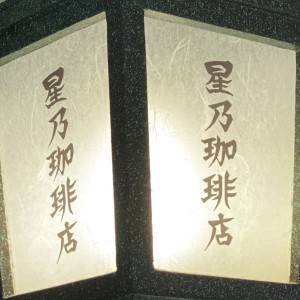 星乃珈琲店
星乃珈琲店